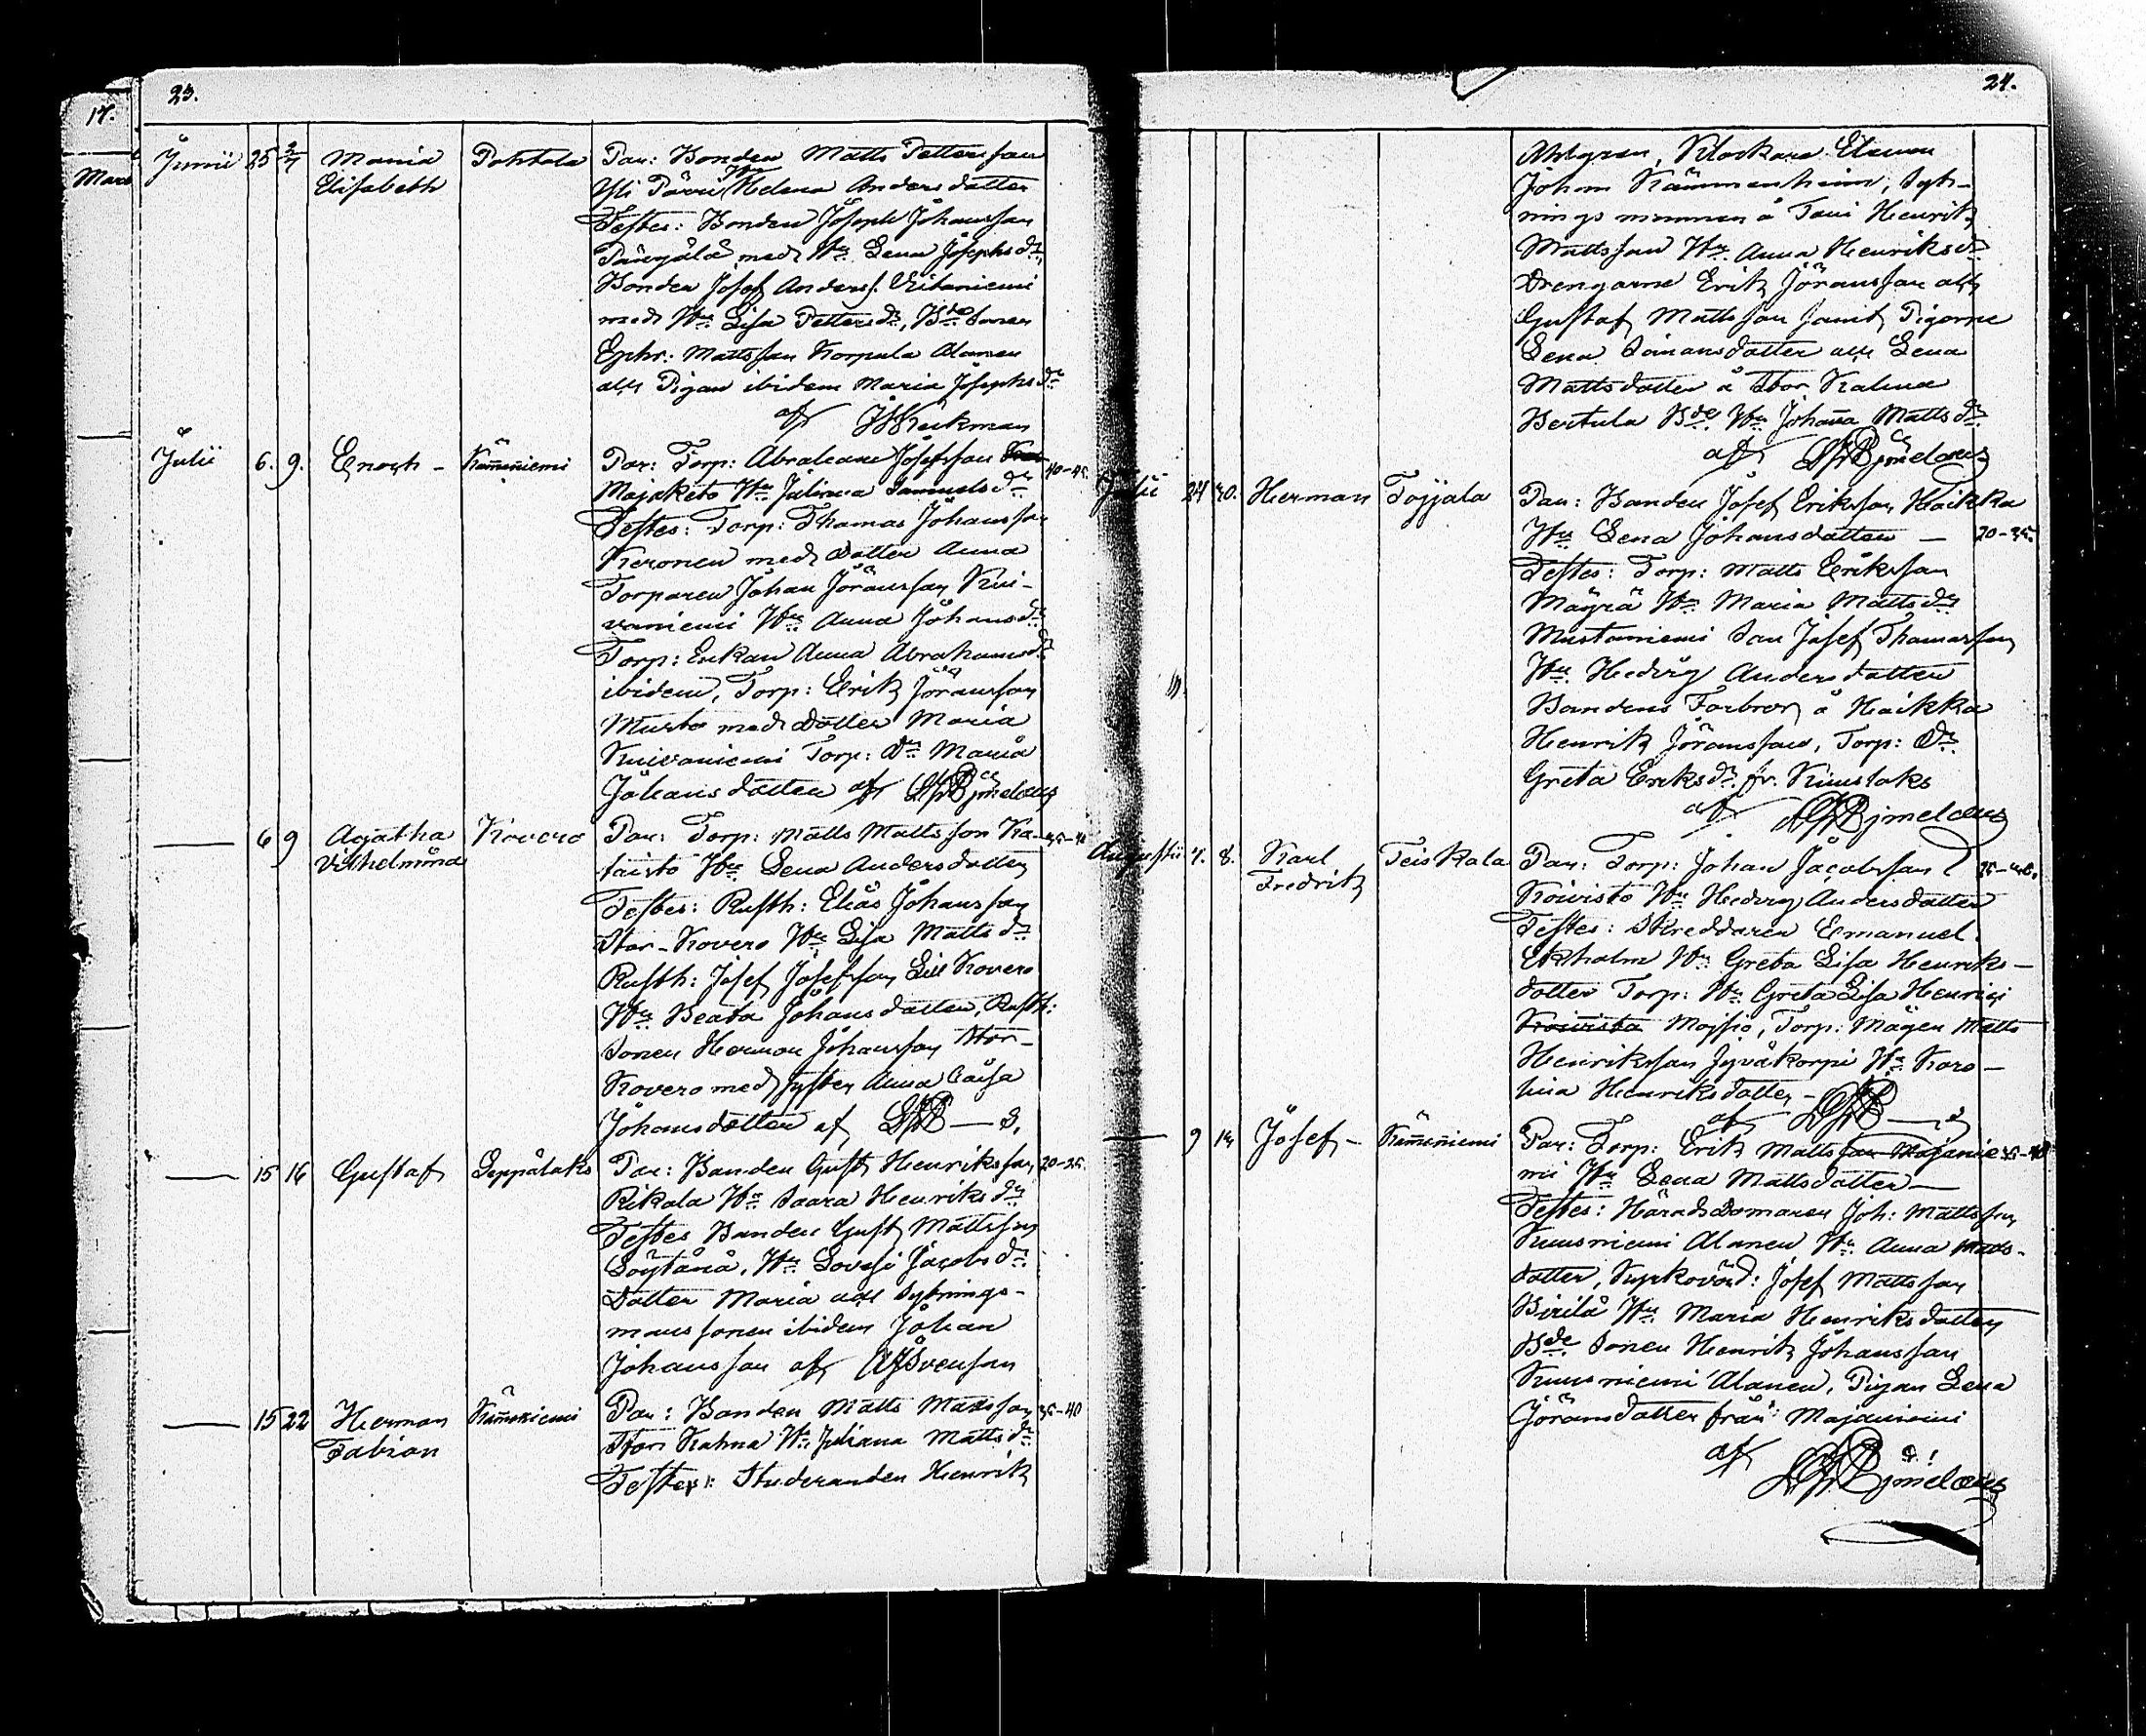 17.
Mars
23.
Junii 25 2/7 Maria Pohtola Par: Bonden Matts Pettersson
Elisabeth Yli Pärri Hu Helena Andersdotter
Testes: Bonden Joseph Johansson
med Hu Lena Josephs dr
Bonden Josef Anders. Eitaniemi
med Hu Lisa Petters dr, Bde Sonen
Ephr: Mattsson Korpula Alanen
och Pigan ibidem Maria Josephs dr
af
Julii 6. 9. Enoch - Kämmeniemi Par: Torp: Abraham Josefsson 40-45.
Majaketo Hu Juliana Samuels dr
Testes: Torp: Thomas Johansson
Keronen med dotter Anna
Torparen Johan Jöransson Kui-
vaniemi Hu Anna Johans dr
Torp: Enkan Anna Abrahams dr
ibidem, Torp: Erik Jöransson
Musto med dotter Maria
Kuivaniemi Torp: Dr Maria
Johansdotter af
— 6 9 Agatha Kovero Par: Torp: Matts Mattsson Ka- 35-40
Vilhelmina taisto Hu Lena Andersdotter
Testes: Rusth: Elias Johansson
Stor-Kovero Hu Lisa Matts dr
Rusth: Josef Josefsson Lill Kovero
Hu Beata Johansdotter, Rusth:
Sonen Herman Johansson Stor-
Kovero med syster Anna Caisa
Johansdotter af
— 15 16 Gustaf Seppälaks Par: Bonden Gust. Henriksson 20-25.
Rikala Hu Saara Henriks dr
Testes Bonden Gust. Mattsson
Söytänä, Hu Lovisi Jacobs dr
Dotter Maria och Sytnings-
mans sonen ibidem Johan
Johansson af Svenson
— 15 22 Herman Kämmeniemi Par: Bonden Matts Mattsson 35-40
Fabian Stor Kalma Hu Juliana Matts dr
Testes: Studeranden Henrik
24.
Ahlgren, Klockare Eleven
Johan Kämmenheim, Syt-
nings mannen å Henrik
Mattsson Hu Anna Henriks dr
Drengarne Erik Jöransson och
Gustaf Mattsson samt Pigorne
Lena Simonsdotter och Lena
Mattsdotter å Stor Kalma
Bertula Bde Hu Johana Matts dr
af
Julii 24 30. Herman Toijala Par: Bonden Josef Eriksson Haikka
Hu Lena Johansdotter — 30-35.
Testes: Torp: Matts Eriksson
Mäyrä Hu Maria Matts dr
Mustaniemi Son Josef Thomasson
Hu Hedvig Andersdotter
Bondens Farbror å Haikka
Henrik Jöransson, Torp: Dr
Greta Eriks dr fr. Kuuslaks
af
Augusti 7. 8. Karl Teiskala Par: Torp: Johan Jacobsson
Fredrik Koivisto Hu Hedvig Andersdotter
Testes: Skreddaren Emanuel
Ekholm Hu Greta Lisa Henriks-
dotter Torp: Hu Greta Lisa Henrici
Koivisto Moisio, Torp: Mågen Matts
Henriksson Jyväkorpi Hu Karo-
lina Henriksdotter -
af
— 9 Josef - Kämmeniemi Par: Torp: Erik Mattsson Majanie-
mi Hu Lena Mattsdotter —
Testes: Häradsdomaren Joh: Mattsson
Kuusniemi Alanen Hu Anna Matts-
dotter, Kyrkovärd: Josef Mattsson
Birilä Hu Maria Henriksdotter
Bde Sonen Henrik Johansson
Kuusniemi Alanen, Pigan Lena
Göransdotter från Majaniemi
af